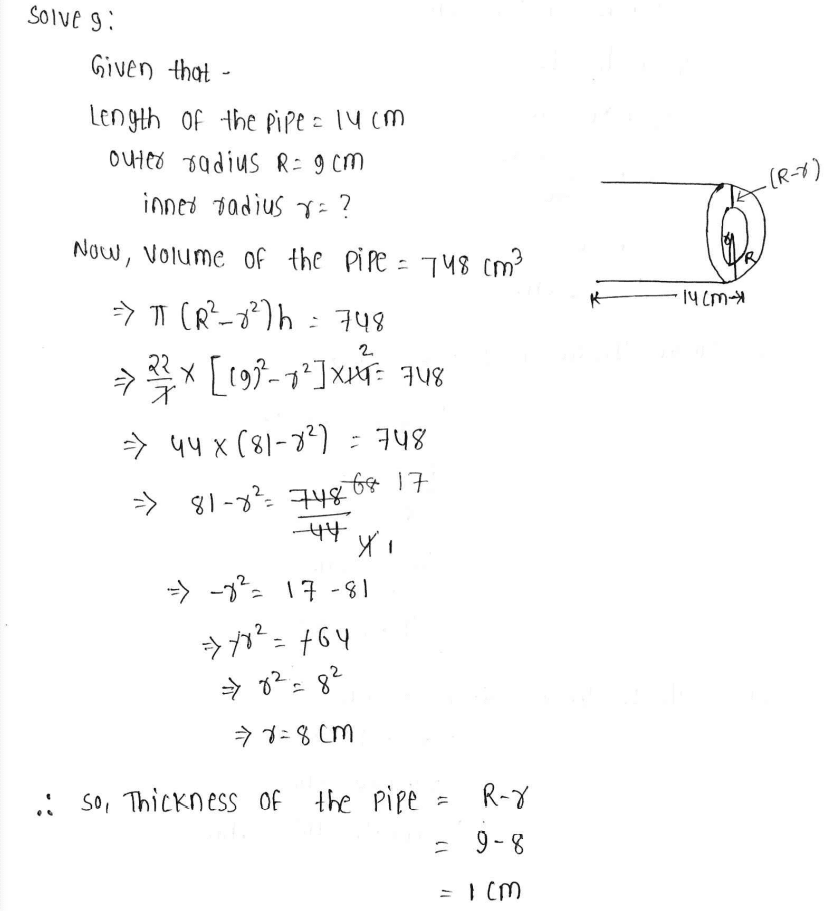 Solve 9:
Given that -
Length of the pipe = 14 cm
outer radius R = 9 cm
inner radius r = ?
Now, Volume of the pipe = 748 cm³
⇒ π (R²-r²)h = 748
⇒ 22/7 × [(9)²-r²]×14 2 = 748
⇒ 44 × (81-r²) = 748
⇒ 81-r² = 748/44 68 17
4 1
⇒ -r² = 17 - 81
⇒ +r² = +64
⇒ r² = 8²
⇒ r = 8 cm
∴ So, Thickness of the pipe = R-r
= 9-8
= 1 cm
(R-r)
r
R
14 cm